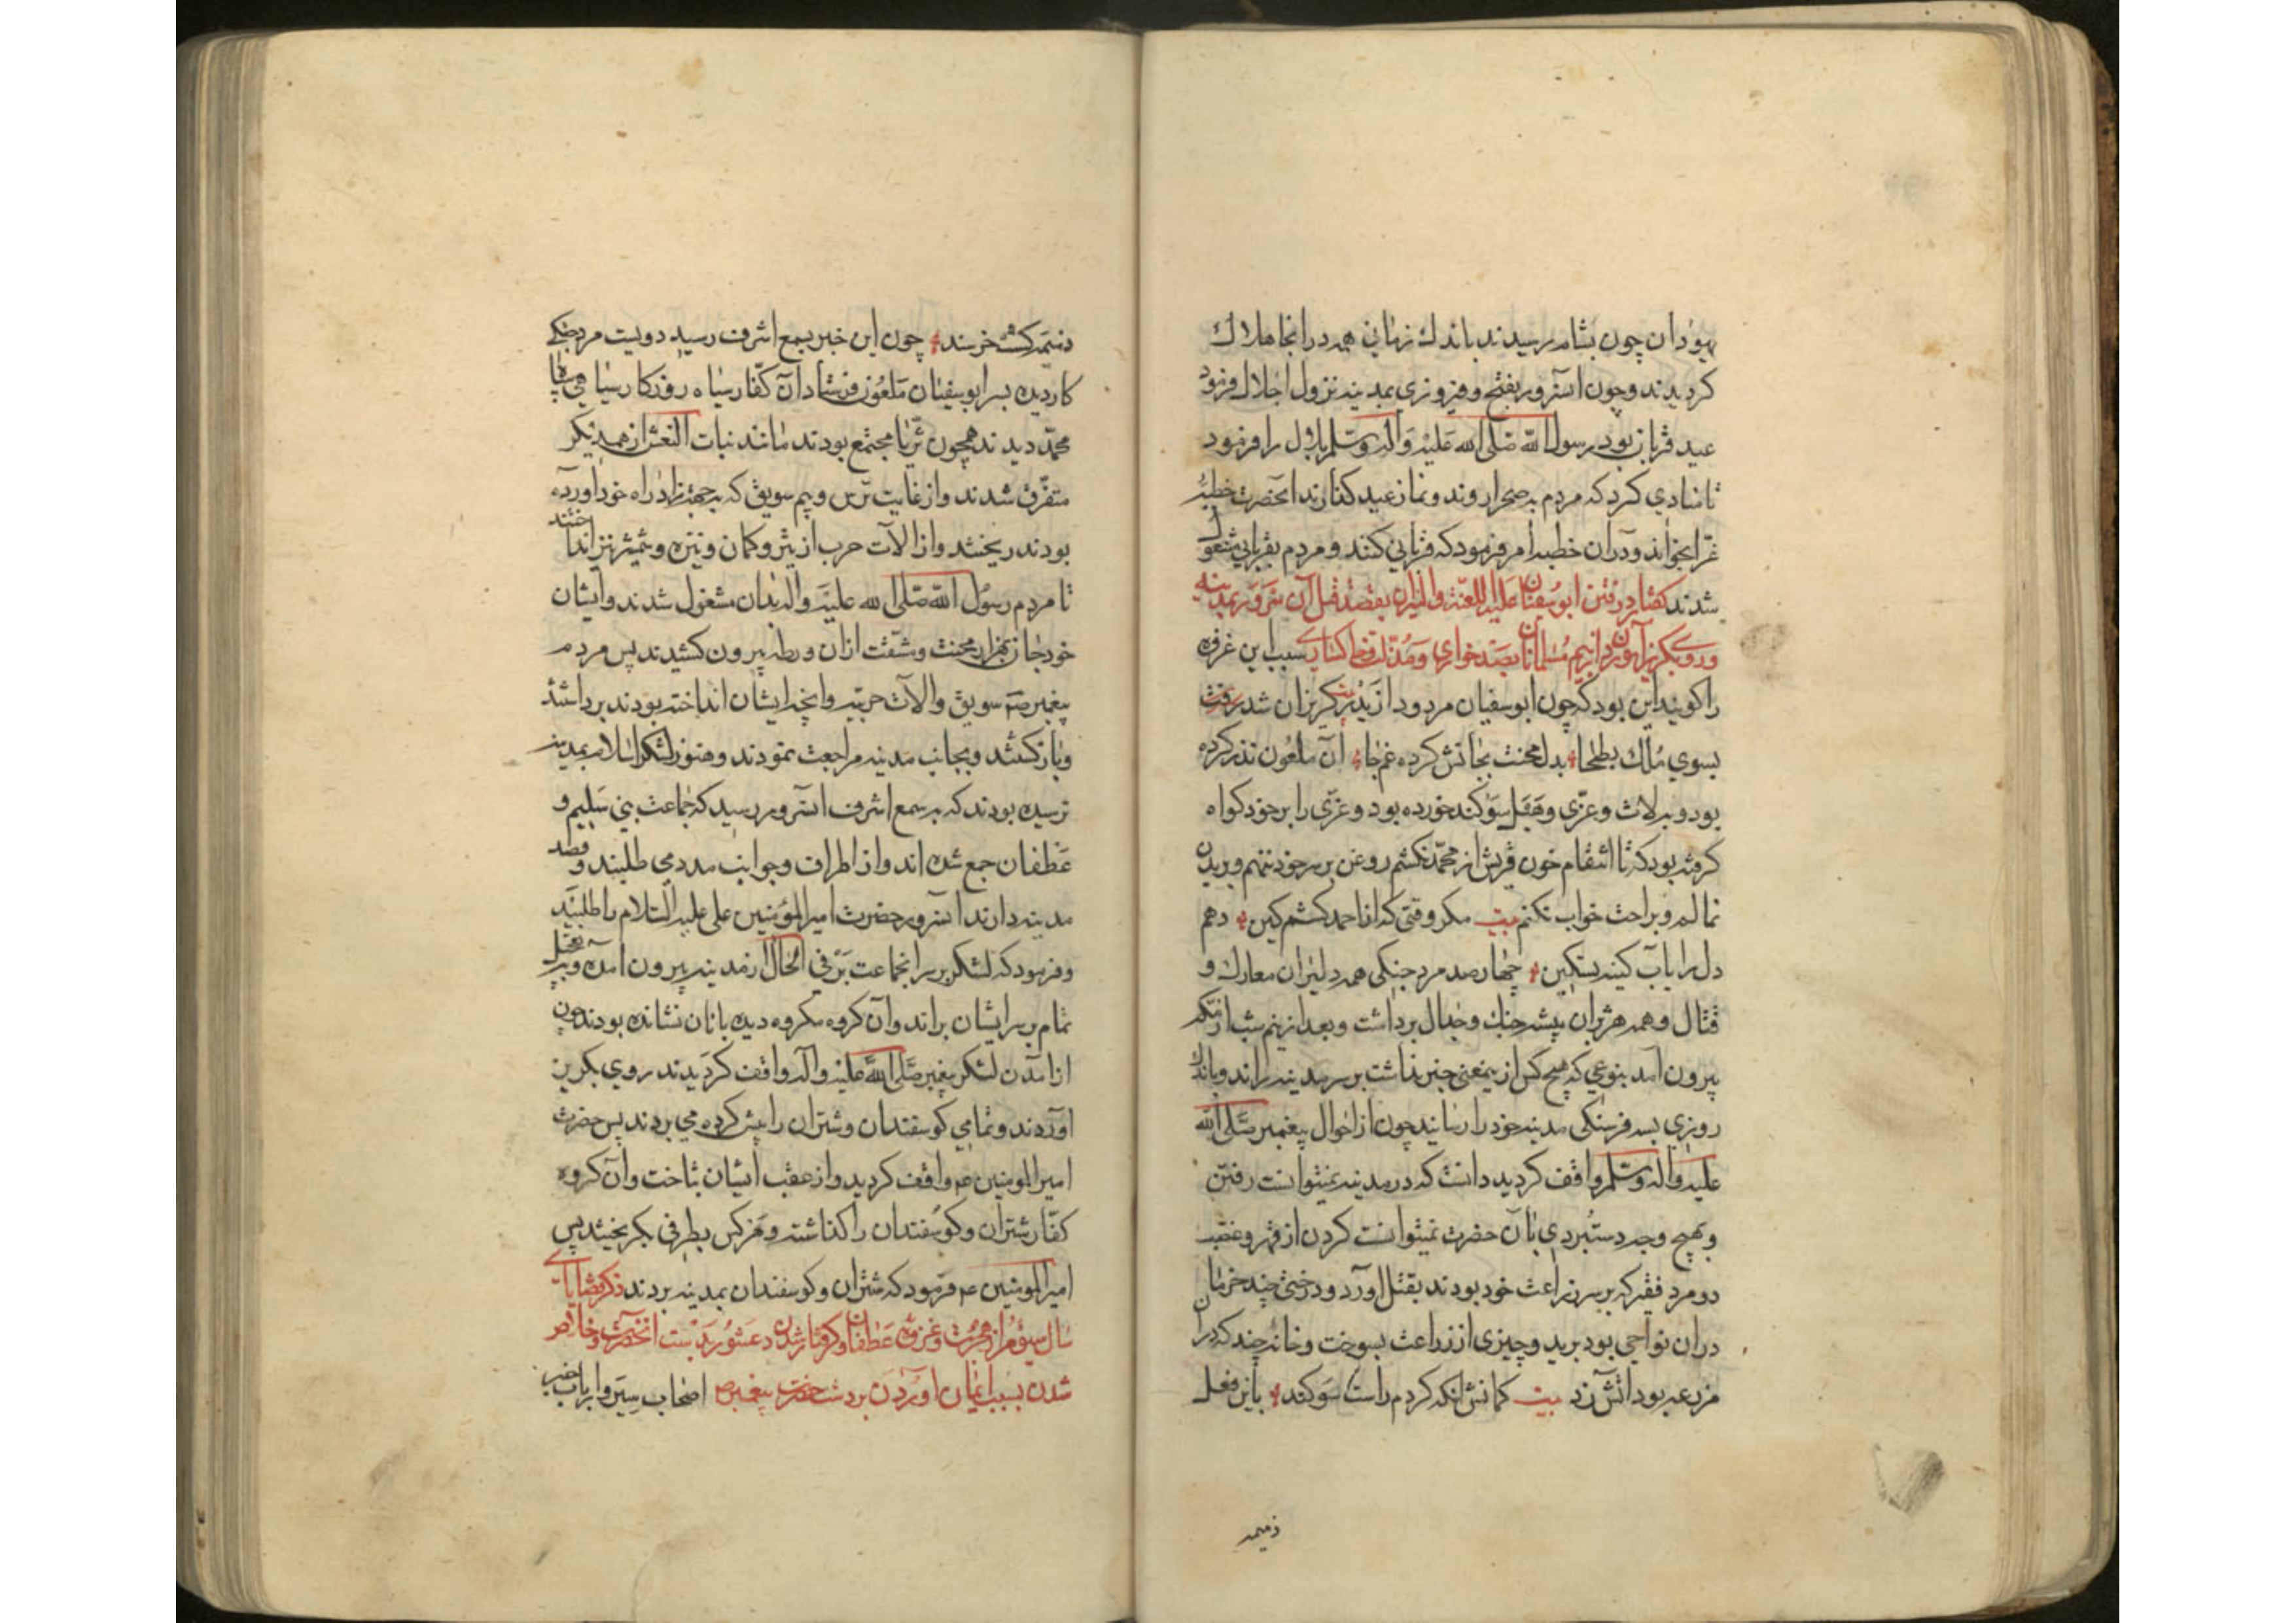 یهودان چون بشام رسیدند باندك زمانی همه در انجا هلاك
کردیدند و چون انسرور بفتح و فیروزی بمدینه نزول اجلال فرمود
عید قربان بود رسول الله صلی الله علیه و اله وسلم بلال را فرمود
تا منادي کرد که مردم به صحرا روند و نماز عید کذارند انحضرت خطبهٔ
غرا بخواند و دران خطبه امر فرمود که قربانی کنند و مردم بقربانی مشغول
شدند کفتار در رفتن ابوسفیان علیه اللعنة والنیران بقصد قتل آن سرور بمدینه
و روی بکریز آوردن از بیم مسلمانان بصد خواري و مذلت سبب این غزوه
را کویند این بود که چون ابوسفیان مردود از بدر کریزان شد بیت برفت
بسوي ملك بطحا بدل محنت بجانش کرده غم جا آن ملعون نذر کرده
بود و به لات و عزی و هبل سوکند خورده بود و عزی را بر خود کواه
کرفته بود که تا انتقام خون قریش از محمد نکشم روغن بر سر خود ننهم و بر بدن
نمالم و براحت خواب نکنم بیت مکر وقتی که از احمد کشم کین دهم
دل را باب کینه تسکین چهارصد مرد جنکی همه دلیران معارك و
قتال و همه هژبران بیشه جنك و جدال برداشت و بعد از نیم شب از مکه
بیرون آمد بنوعی که هیچ کس ازیمعنی خبر نداشت بر سر مدینه راند و باندك
روزي بسه فرسنکی مدینه خود را رسانید چون از احوال پیغمبر صلی الله
علیه و اله وسلم واقف کردید دانست که در مدینه نمیتوانست رفتن
و بهیچ وجه دستبردی بان حضرت نمیتوانست کردن از قهر و غضب
دو مرد فقیر که بر سر زراعت خود بودند بقتل اورد و درختی چند خرما
دران نواحی بود برید و چیزی از زراعت بسوخت و خانهٔ چند که دران
مزرعه بود اتش زد بیت کمانش انکه کردم راست سوکند باین فعل
ذمیمه
ذمیمه کشته خرسند چون این خبر بسمع اشرف رسید دویست مرد جنکی
کار دیده بسر ابوسفیان ملعون فرستاد آن کفار سیاه روزکار سیاهی سپاه
محمد دیدند همچون ثریا مجتمع بودند مانند بنات النعش از همدیکر
متفرق شدند و از غایت ترس و بیم سویق که بجهة زاد راه خود آورده
بودند ریختند و از الات حرب از تیر و کمان و نیزه و شمشیر نیز انداختند
تا مردم رسول الله صلی الله علیه و اله بدان مشغول شدند و ایشان
خود جان بهزار محنت و مشقت ازان ورطه بیرون کشیدند پس مردم
پیغمبر صم سویق و الات حربیه و انچه ایشان انداخته بودند برداشتند
و باز کشتند و بجانب مدینه مراجعت نمودند و هنوز لشکر اسلام بمدینه
نرسیده بودند که به سمع اشرف انسرور رسید که جماعت بنی سلیم و
غطفان جمع شده اند و از اطراف و جوانب مدد می طلبند و قصد
مدینه دارند آنسرور حضرت امیر المؤمنین علی علیه السلام را طلبید
و فرمود که لشکر بر سر انجماعت بر فی الحال از مدینه بیرون امده و بتعجیل
تمام بر سر ایشان براند و آن کروه مکروه دیده بانان نشانده بودند چون
از امدن لشکر پیغمبر صلی الله علیه و اله واقف کردیدند روی بکریز
آوردند و تمامی کوسفندان و شتران را پیش کرده می بردند پس حضرت
امیر المومنین ع واقف کردید و از عقب ایشان بتاخت و آن کروه
کفار شتران و کوسفندان را کذاشته و هر کس بطرفی بکریختند پس
امیر المومنین ع فرمود که شتران و کوسفندان بمدینه بردند ذکر قضایای
سال سیوم از هجرت و غزوهٔ غطفان و کرفتار شدن دعثور بدست انحضرت و خلاص
شدن بسبب ایمان اوردن بر دست حضرت پیغمبر ص اصحاب سیر و ارباب خبر